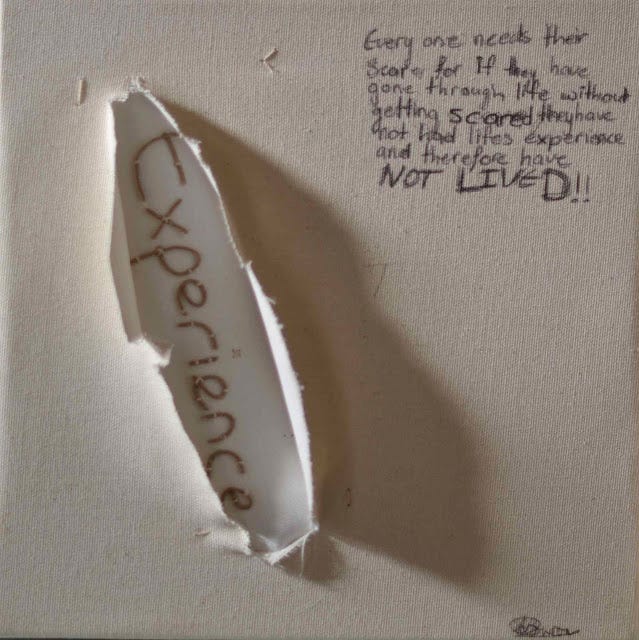 Experience
Every one needs their
Scare for If they have
gone through life without
getting scared theyhave
not had lifes experience
and therefore have
NOT LIVED!!